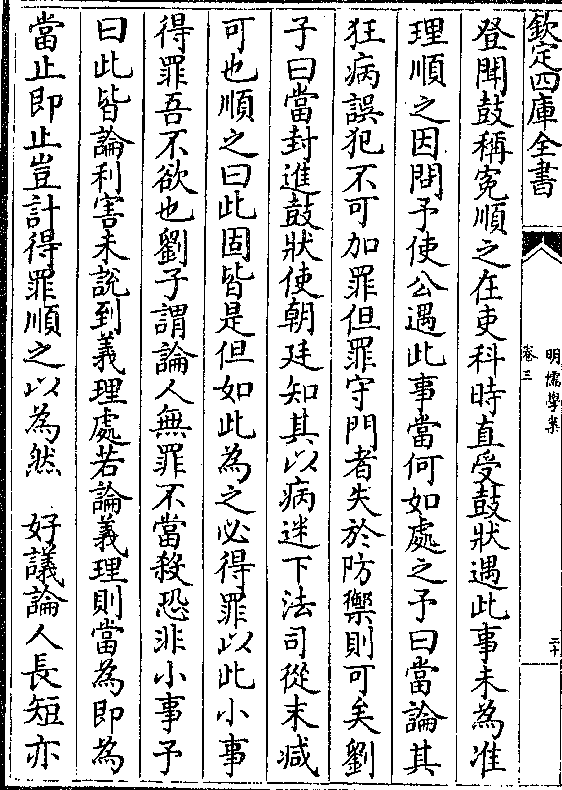 欽定四庫全書
明儒學案
卷三
二十
登聞鼓稱寃順之在吏科時直受鼓狀遇此事未為准
理順之因問予使公遇此事當何如處之予曰當論其
狂病誤犯不可加罪但罪守門者失於防禦則可矣劉
子曰當封進鼓狀使朝廷知其以病迷下法司從末减
可也順之曰此固皆是但如此為之必得罪以此小事
得罪吾不欲也劉子謂論人無罪不當殺恐非小事予
曰此皆論利害未說到義理處若論義理則當為即為
當止即止豈計得罪順之以為然　好議論人長短亦